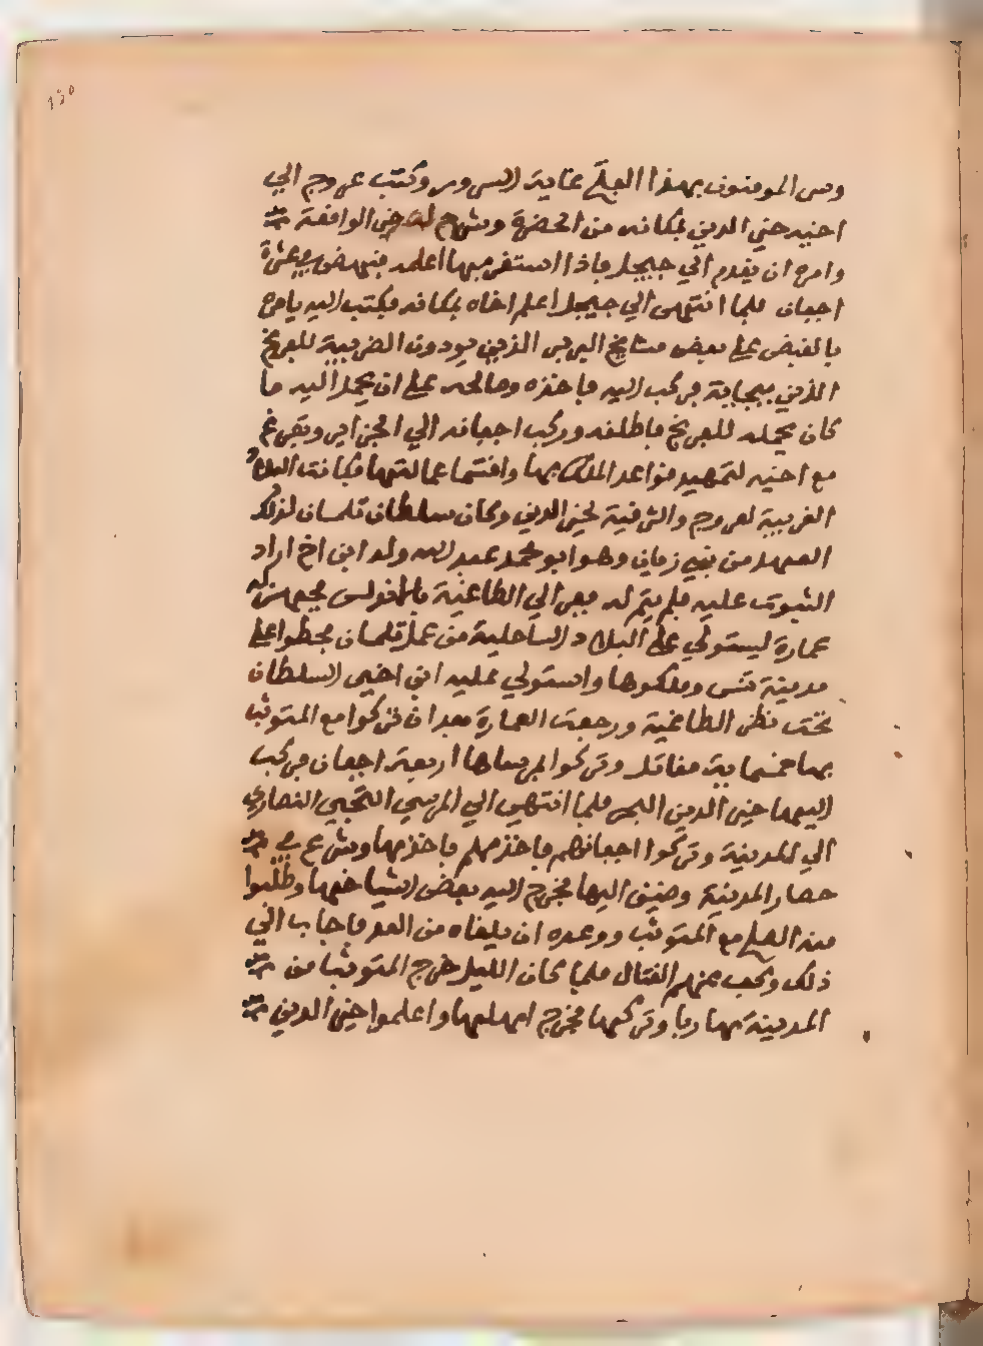 ١٥٠
وسر المومنون بهذا الفتح غاية السرور وكتب عروج الي
اخيه خير الدين بمكانه من الحضرة وشرح له خبر الواقعة
وامره ان يقدم الي جيجل فاذا استقر بها اعلمه فنهض في عشرة
اجفان فلما انتهى الي جيجل اعلم اخاه بمكانه فكتب اليه يامره
بالقبض على بعض مشايخ البربر الذين يودون الضريبة للفرنج
الذين ببجاية فركب اليه فاخذه وصالحه على ان يحمل اليه ما
كان يحمله للفرنج فاطلقه وركب اجفانه الي الجزاير وتفرغ
مع اخيه لتمهيد قواعد الملك بها واقتسما عمالتها فكانت البلاد
الغربية لعروج والشرقية لخير الدين وكان سلطان تلمسان لذلك
العهد من بني زيان وهو ابو محمد عبد الله وله ابن اخ اراد
التوثب عليه فلم يتم له ففر الي الطاغية بالاندلس فجهز له
عمارة ليستولي على البلاد الساحلية من عمل تلمسان فحطوا على
مدينة تنس وملكوها واستولي عليه ابن اخي السلطان
تحت نظر الطاغية ورجعت العمارة بعد ان تركوا مع المتوثب
بها خمسماية مقاتل وتركوا بمرساها اربعة اجفان فركب
اليها خير الدين البحر فلما انتهى الي المرسي التجي النصاري
الي المدينة وتركوا اجفانهم فاخذها وشرع في
حصار المدينة وضيق اليها فخرج اليه بعض اشياخها وطلبوا
منه الصلح مع المتوثب ووعده ان يلقاه من الغد فاجاب الي
ذلك وكف عنهم القتال فلما كان الليل خرج المتوثب من
المدينة هاربا وتركها فخرج اهلها واعلموا خير الدين